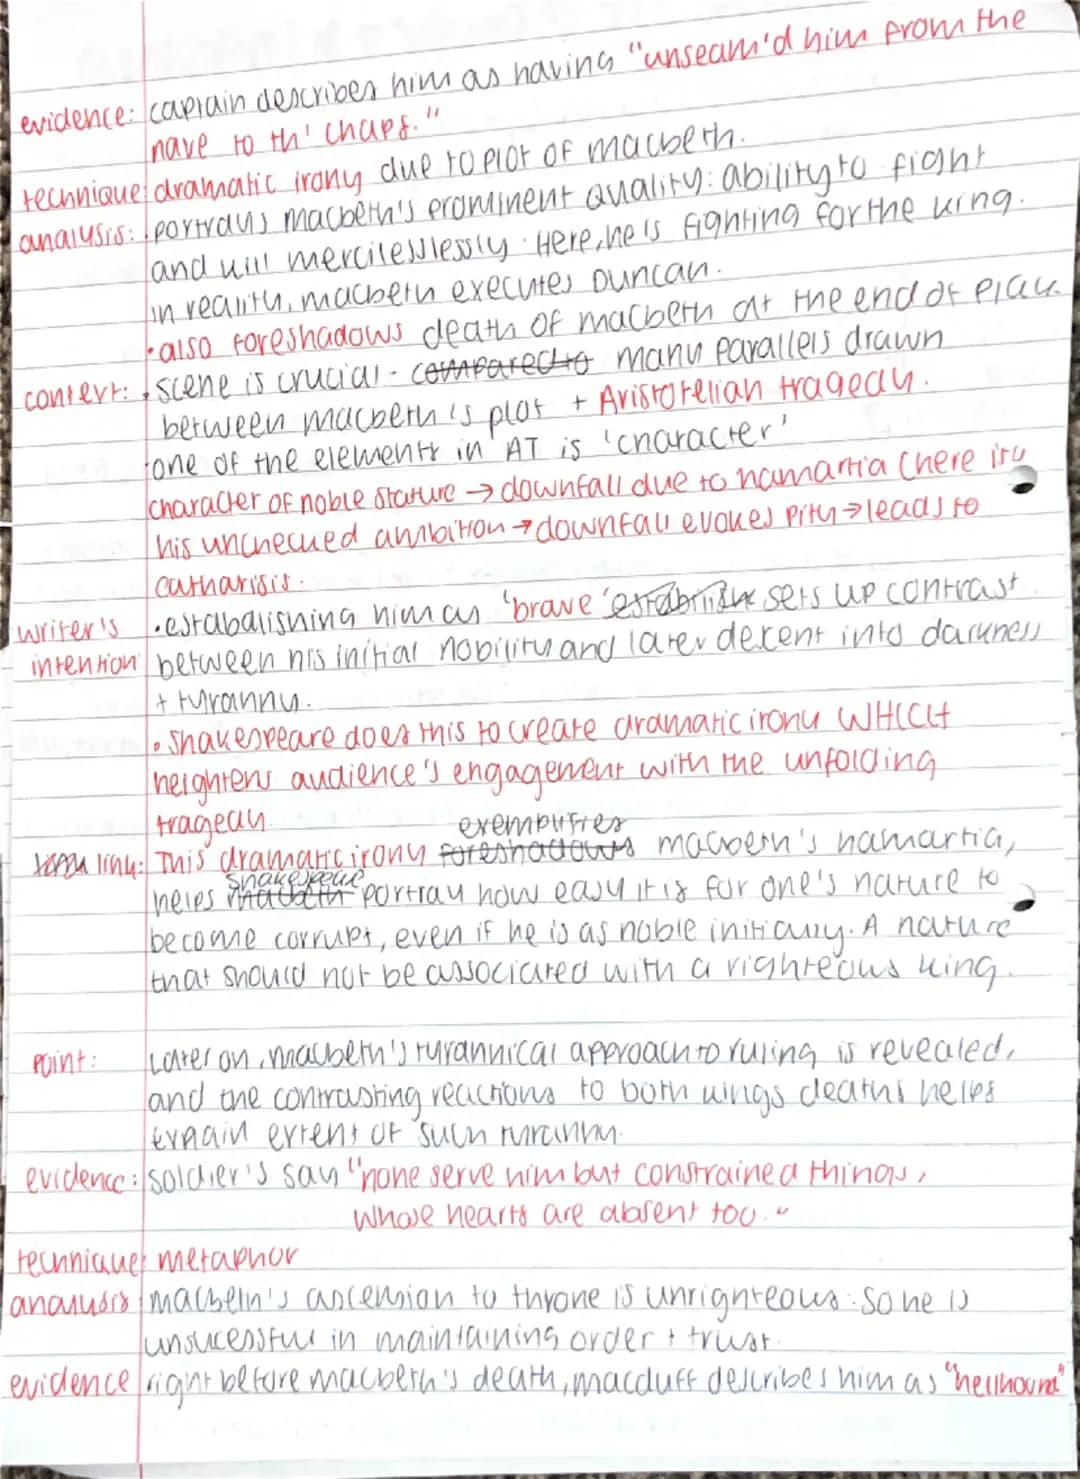 evidence: captain describes him as having "unseam'd him from the
nave to th' chaps."
technique: dramatic irony due to plot of macbeth.
analysis: · portrays macbeth's prominent quality: ability to fight
and kill mercilesslessly. Here, he is fighting for the king.
in reality, macbeth executes Duncan.
· also foreshadows death of macbeth at the end of play.
context: · scene is crucial - compared to many parallels drawn
between macbeth's plot + Aristotelian tragedy.
· one of the elements in AT is 'character'
character of noble stature → downfall due to hamartia (here it's
his unchecked ambition → downfall evokes pity → leads to
catharisis.
writer's · estabalishing him as 'brave' establishe sets up contrast
intention between his initial nobility and later decent into darkness
+ tyranny.
· Shakespeare does this to create dramatic irony WHICH
heightens audience's engagement with the unfolding
tragedy.
exemplifies
link: This dramatic irony foreshadows macbeth's hamartia,
shakespeare
helps macbeth portray how easy it is for one's nature to
become corrupt, even if he is as noble initially. A nature
that should not be associated with a righteous king.
point: Later on, macbeth's tyrannical approach to ruling is revealed,
and the contrasting reactions to both kings deaths helps
explain extent of such tyranny.
evidence: soldier's say "none serve him but constrained things,
Whose hearts are absent too."
technique: metaphor
analysis macbeth's ascension to throne is unrighteous. So he is
unsucessful in maintaining order + trust.
evidence right before macbeth's death, macduff describes him as "hellhound"